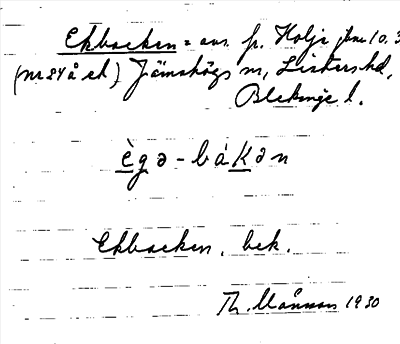 Ekbacken = avs. fr. Holje 10.3
(nr 24 å ek) Jämshögs sn, Listers hd,
Blekinge l.
ègə-bákən
Ekbacken, bek.
Th. Månsson 1930